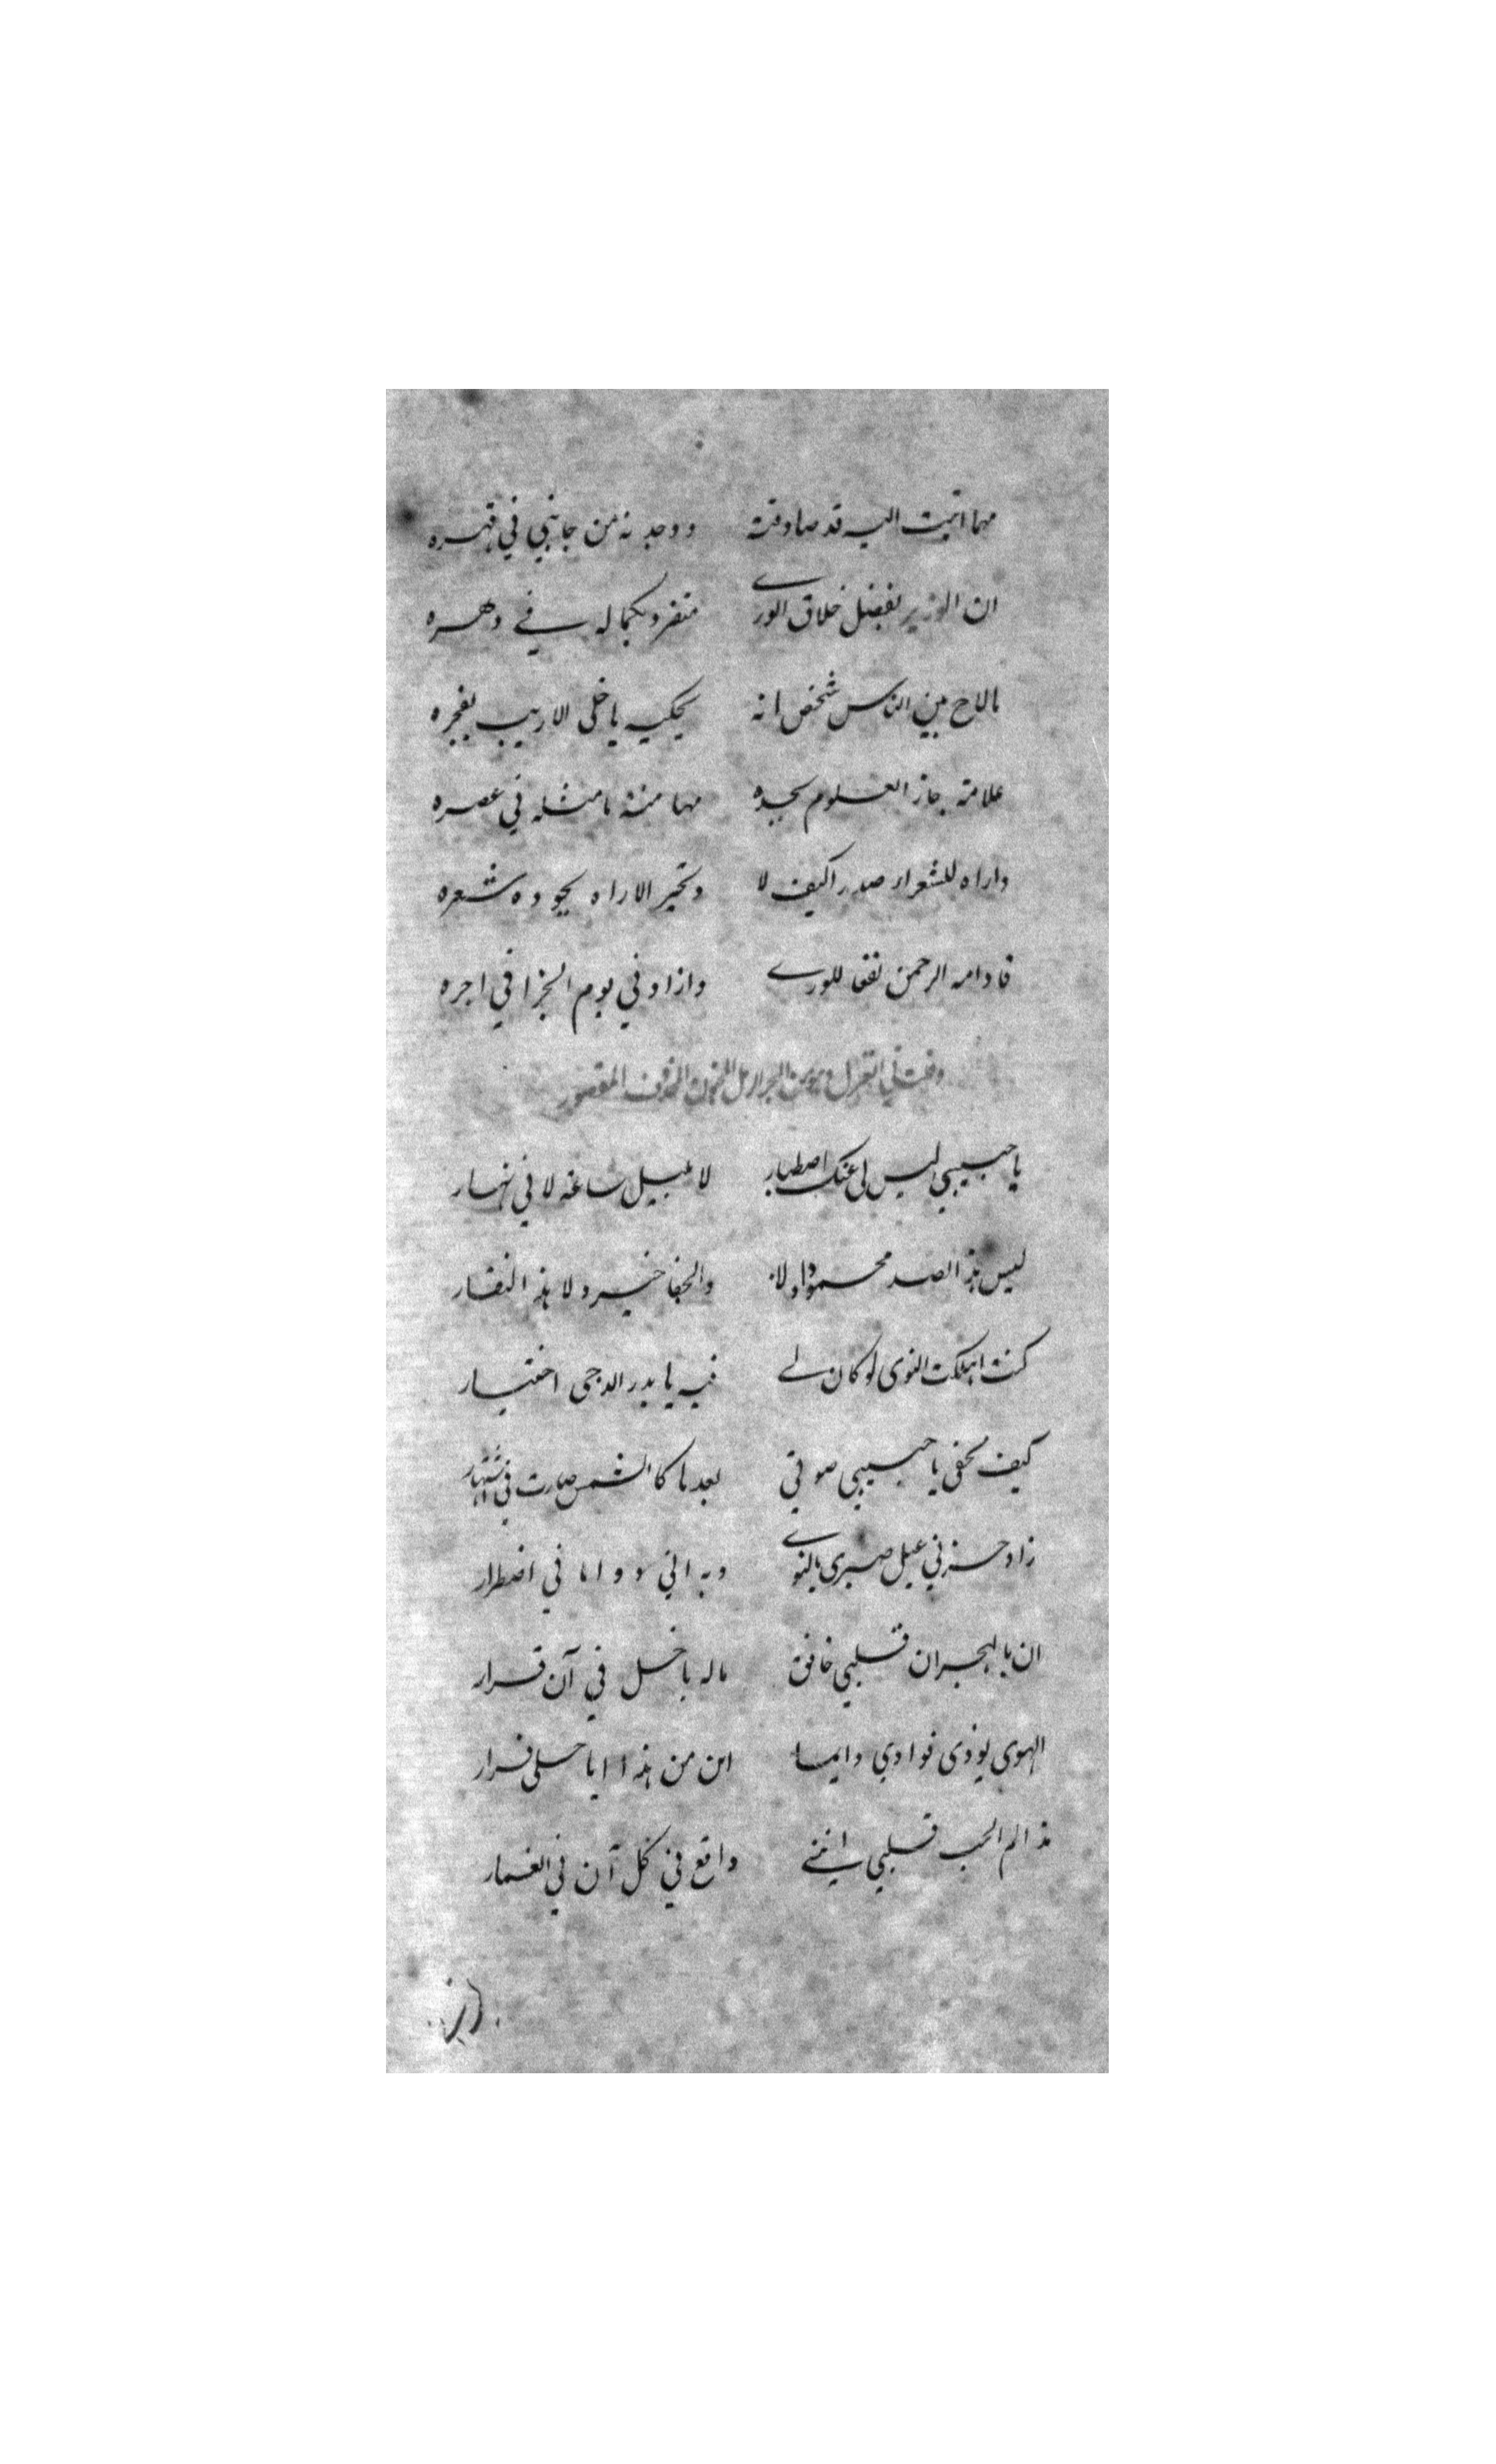 مهما اتيت اليه قد صادفته ووجدته من جانبي في قهره
ان الوزير بفضل خلاق الوري متفرد بكماله في دهره
ما لاح بين الناس شخص انه يحكيه يا خلي الاريب بفجره
علامة حاز العلوم بجده مهما منه ما مثله في عصره
واراه للشعراء صدرا كيف لا وتحير الاراه بجوده شعره
فادامه الرحمن نفعا للوري وازاد في يوم الجزا في اجره
وقلت في التغزل من البحر الرمل المخبون المحذوف المقصور
يا حبيبي ليس لي عنك اصطبار لا بليل ساعة لا في نهار
ليس هذا الصد محمودا ولا والجفا خير ولا هذا النفار
كنت اهلكت النوى لو كان لي فيه يا بدر الدجى اختيار
كيف تخفى يا حبيبي صوتي بعد ما كالشمس صارت في اشتهار
زاد حزني عيل صبري بالنوى وبه اني دواما في اضطرار
ان بالهجران قلبي خافق ماله يا خل في آن قرار
الهوى يوذى فوادي دايما اين من هذا ايا خلي فرار
مذ الم الحب قلبي انني واقع في كل آن في الغمار